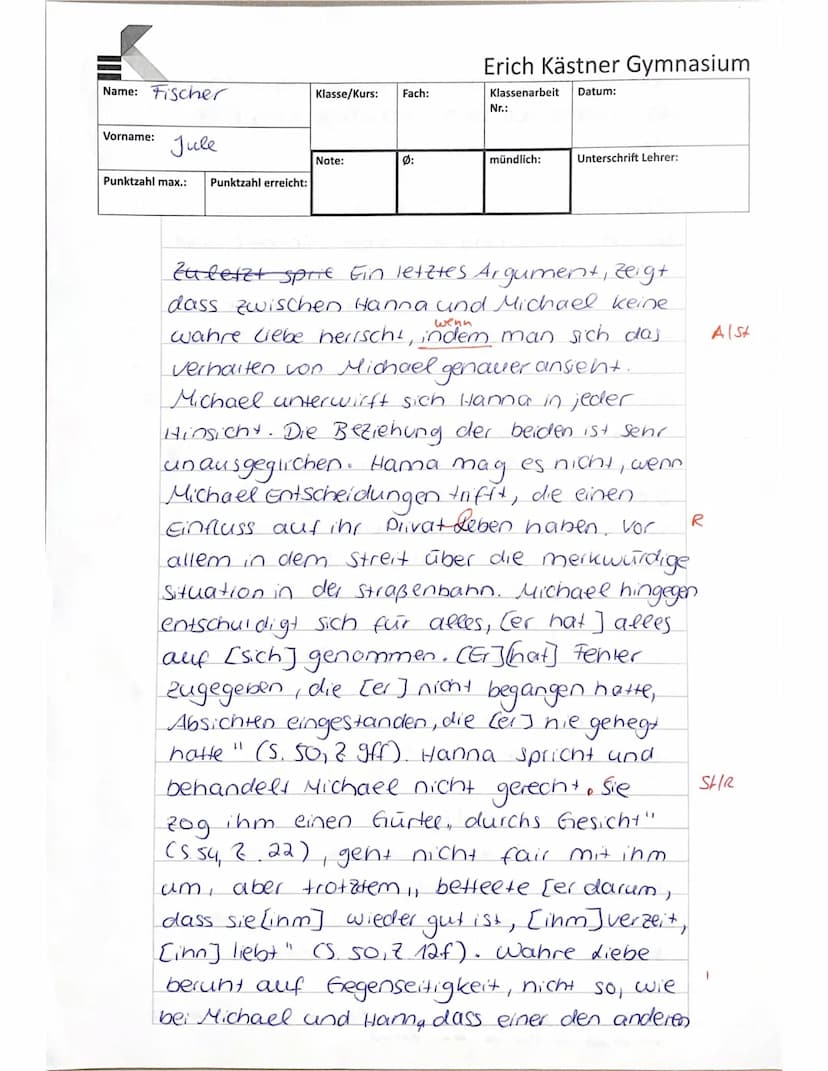 Erich Kästner Gymnasium
Name: Fischer
Klasse/Kurs:
Fach:
Klassenarbeit Nr.:
Datum:
Vorname: Jule
Note:
Ø:
mündlich:
Unterschrift Lehrer:
Punktzahl max.:
Punktzahl erreicht:
Zuletzt sprit Ein letztes Argument, zeigt
dass zwischen Hanna und Michael keine
wenn
wahre Liebe herrscht, indem man sich das A/St
Verhalten von Michael genauer ansieht.
Michael unterwirft sich Hanna in jeder
Hinsicht. Die Beziehung der beiden ist sehr
unausgeglichen. Hanna mag es nicht, wenn
Michael Entscheidungen trifft, die einen
Einfluss auf ihr Privatleben haben, vor R
allem in dem Streit über die merkwürdige
Situation in der Straßenbahn. Michael hingegen
entschuldigt sich für alles, [er hat] alles
auf [sich] genommen. [Er] [hat] Fehler
zugegeben, die [er] nicht begangen hatte,
Absichten eingestanden, die [er] nie gehegt
hatte" (S. 50, Z 9ff). Hanna spricht und
behandelt Michael nicht gerecht. Sie St/R
zog ihm einen Gürtel „durchs Gesicht"
(S 54, Z. 22), geht nicht fair mit ihm
um, aber trotztem „bettelte [er darum,
dass sie [ihm] wieder gut ist, [ihm] verzeit,
[ihn] liebt" (S. 50, Z 12f). Wahre Liebe
beruht auf Gegenseitigkeit, nicht so, wie
bei Michael und Hanna dass einer den anderen